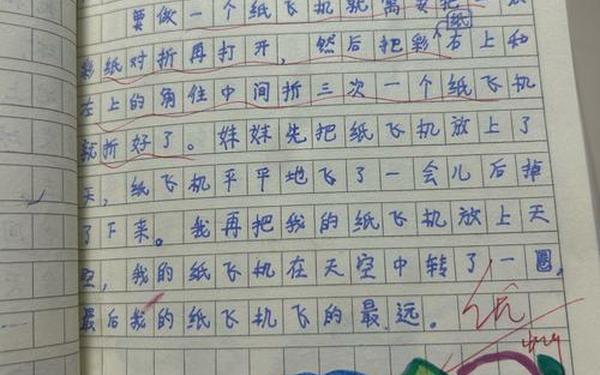 要做一个纸飞机就需要把一
彩纸对折再打开，然后把彩纸右上和
左上的角往中间折三次一个纸飞机
就折好了。妹妹先把纸飞机放上了
天，纸飞机平平地飞了一会儿后掉
了下来。我再把我的纸飞机放上天
空，我的纸飞机在天空中转了一圈，
最后我的纸飞机飞的最远。优